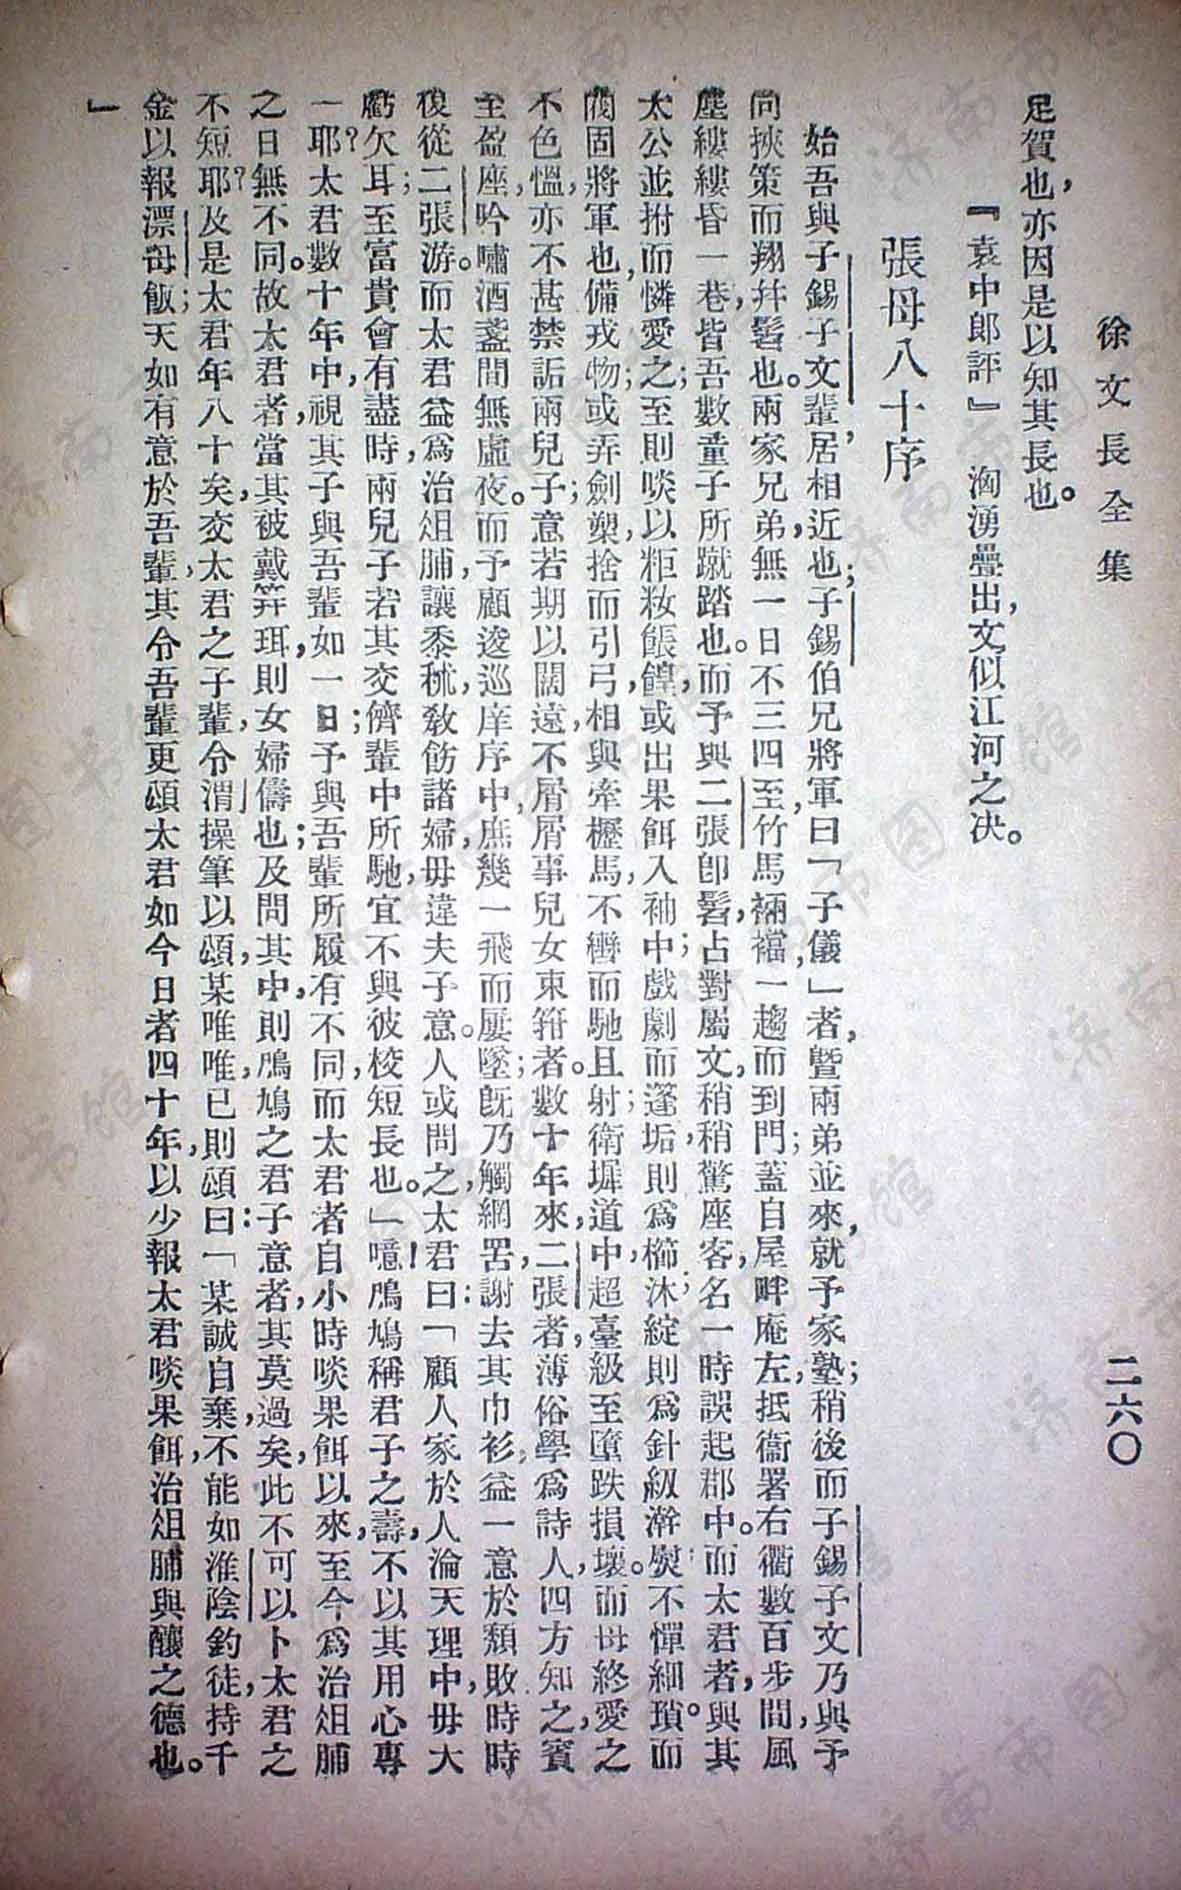 徐文長全集
二六〇
足賀也，亦因是以知其長也。
『袁中郎評』 洶湧疊出，文似江河之決。
張母八十序
始吾與子錫子文輩，居相近也；子錫伯兄將軍曰「子儀」者，曁兩弟並來，就予家塾；稍後而子錫子文乃與予
同挾策而翔，幷髻也。兩家兄弟，無一日不三四至，竹馬裲襠，一趨而到門；蓋自屋畔庵左，抵衞署右衢數百步間，風
塵縷縷昏一巷，皆吾數童子所蹴踏也。而予與二張卽髻，占對屬文，稍稍驚座客，名一時誤起郡中。而太君者，與其
太公並拊而憐愛之；至則啖以粔籹餦餭，或出果餌入袖中；戲劇而蓬垢，則爲櫛沐；綻則爲針級澣熨，不憚細瑣。而
閫固將軍也，備戎物；或弄劍槊，捨而引弓，相與牽櫪馬，不轡而馳。且射衛墀道中，超臺級至墮跌損壞。而母終愛之，
不色慍，亦不甚禁詬兩兒子；意若期以闊遠，不屑屑事兒女束筓者。數十年來，二張者，薄俗學爲詩人，四方知之，賓
至盈座，吟嘯酒盞間無虛夜。而予顧逡巡庠序中，庶幾一飛而屢墜；旣乃觸網罟，謝去其巾衫，益一意於頹敗，時時
復從二張游。而太君益爲治俎脯，讓黍秫，敎飭諸婦，毋違夫子意。人或問之，太君曰：「顧人家於人淪天理中，毋大
虧欠耳；至富貴會有盡時，兩兒子若其交；儕輩中所馳，宜不與彼校短長也。」噫！鳲鳩稱君子之壽，不以其用心專
一耶？太君數十年中，視其子與吾輩如一日；予與吾輩所履有不同，而太君者，自小時啖果餌以來，至今爲治俎脯
之日，無不同。故太君者，當其被戴筓珥，則女婦儔也；及問其中，則鳲鳩之君子意者，其莫過矣，此不可以卜太君之
不短耶？及是太君年八十矣，交太君之子輩，令渭操筆以頌，某唯唯，已則頌曰：「某誠自棄，不能如淮陰釣徒，持千
金以報漂母飯；天如有意於吾輩，其令吾輩更頌太君如今日者四十年，以少報太君啖果餌，治俎脯與釀之德也。
」